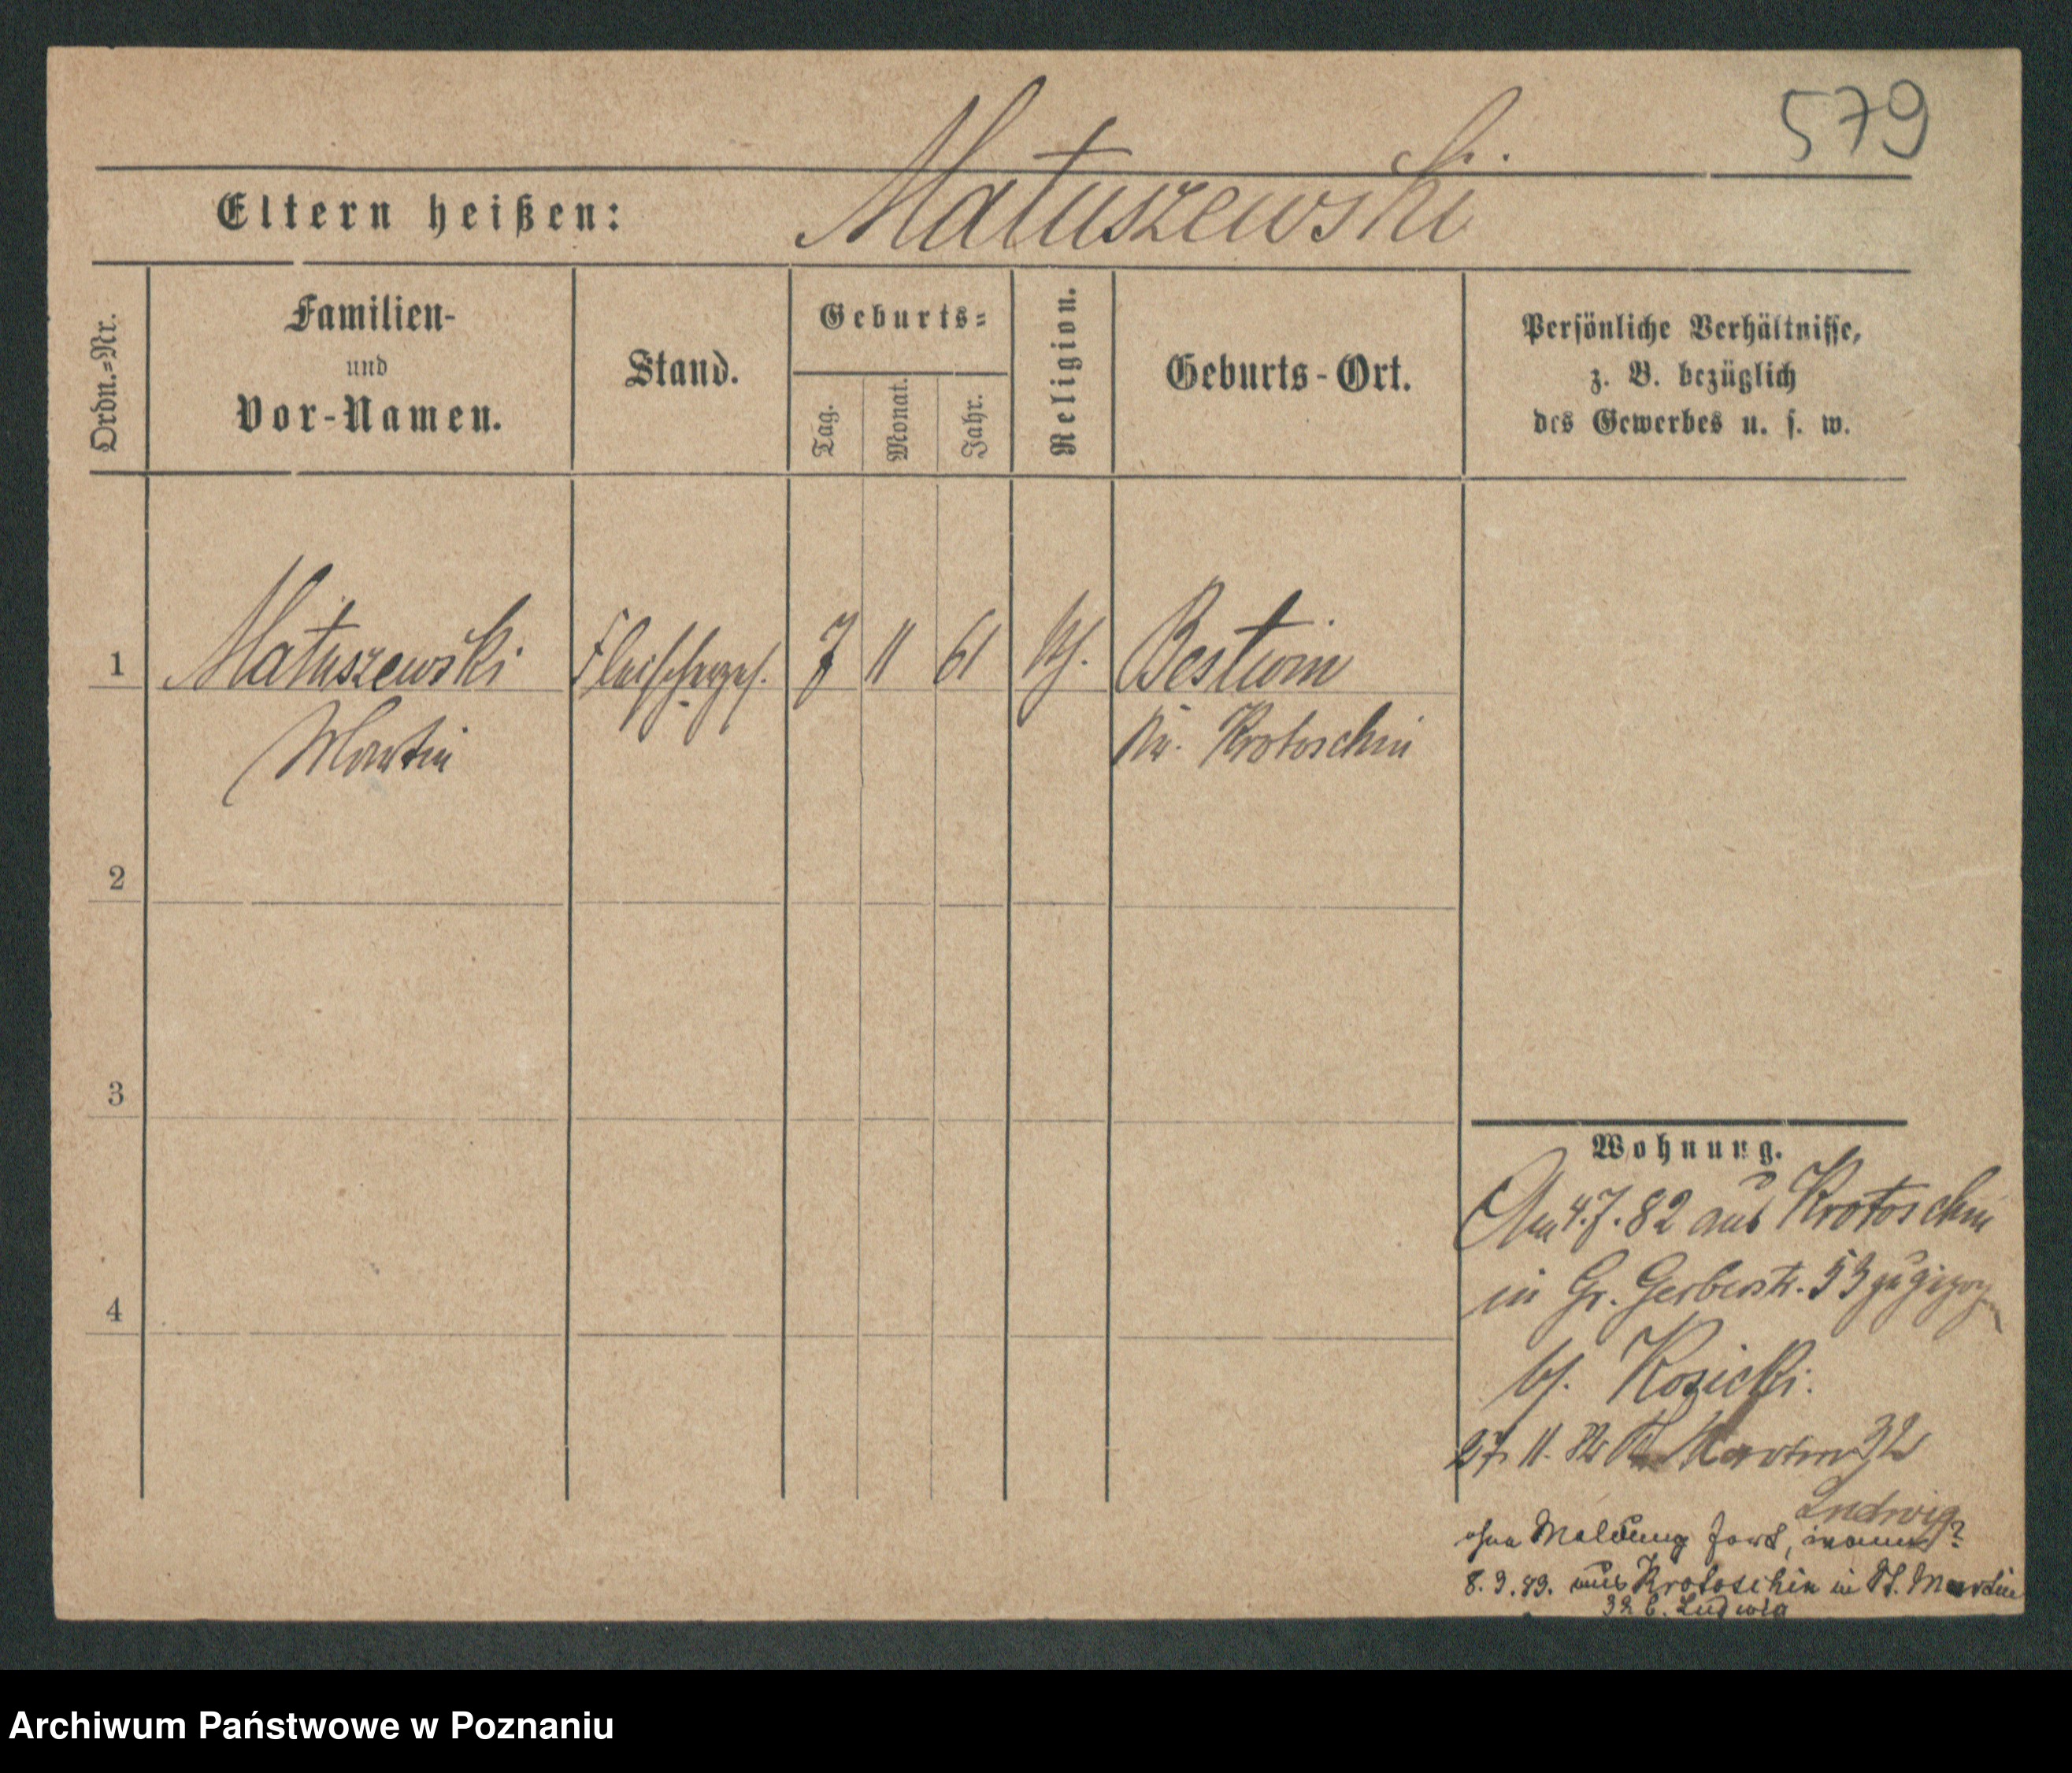 579
Matuszewski
Eltern heißen:
Ordn.=Nr.
Familien-
und
Vor-Namen.
Stand.
Geburts=
Tag.
Monat.
Jahr.
Religion.
Geburts-Ort.
Persönliche Verhältnisse,
z. B. bezüglich
des Gewerbes u. s. w.
1 Matuszewski Fleischerges. 7 11 61 Bestwin
Martin Kr. Krotoschin
2
3
4
Wohnung.
Am 4.7.82 aus Krotoschin
in Gr. Gerberstr. 53 zugezog
bei Kosicki.
27. 11. 82 St. Martin 32
Ludwig
ohne Meldung fort, wann?
8. 9. 83. aus Krotoschin in St. Martin
32 b. Ludwig
Archiwum Państwowe w Poznaniu